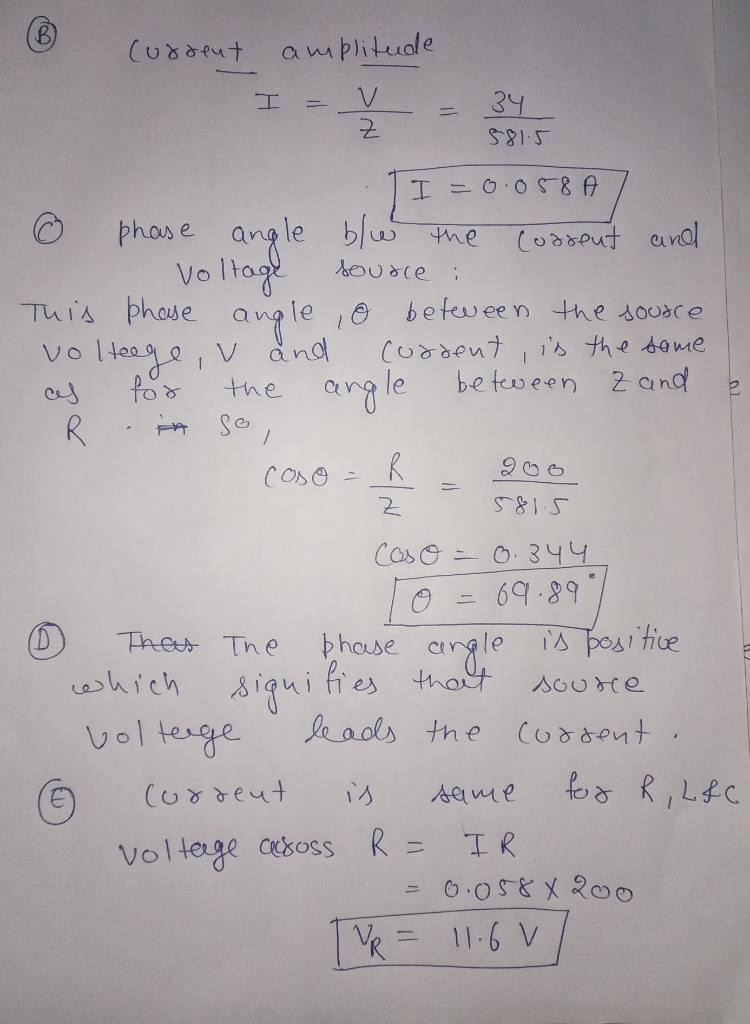 (B) Current amplitude
I = V/Z = 34/581.5
I = 0.058 A
(C) phase angle b/w the current and
voltage source :
This phase angle, θ between the source
voltage, V and current, is the same
as for the angle between Z and
R . in so,
cosθ = R/Z = 200/581.5
Cosθ = 0.344
θ = 69.89°
(D) The phase angle is positive
which signifies that source
voltage leads the current .
(E) Current is same for R, L & C
Voltage across R = IR
= 0.058 X 200
VR = 11.6 V